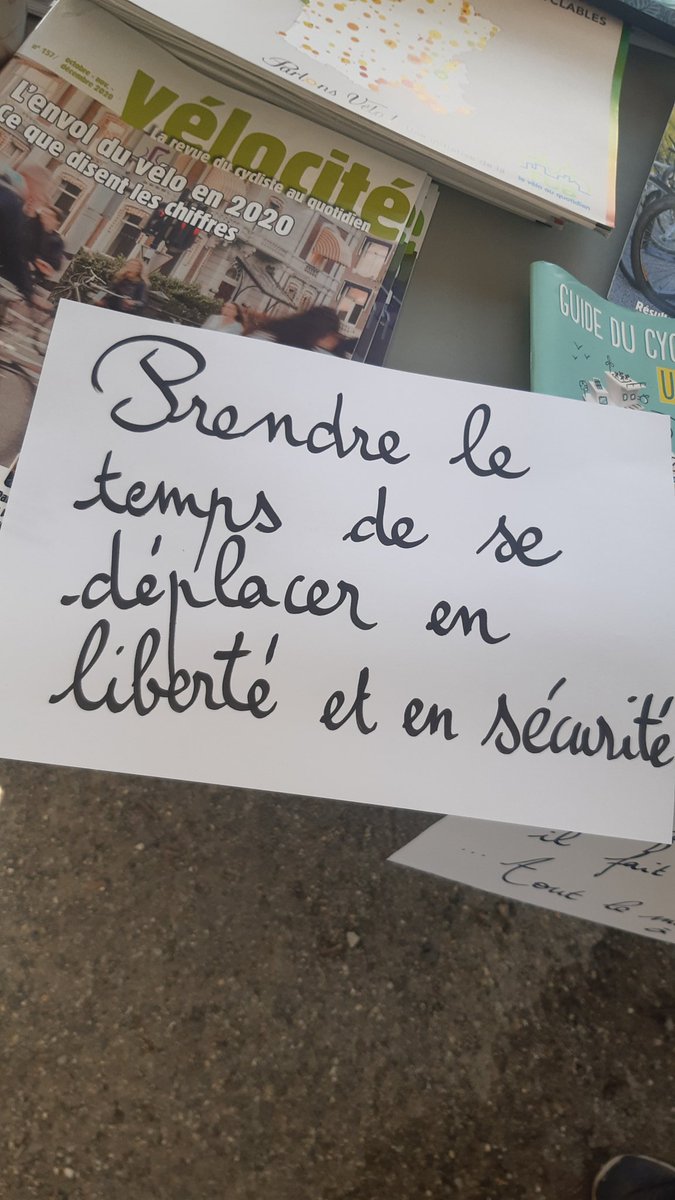 CLABLES
Partons Vélo !
le vélo au quotidien
n° 157/ octobre - nov. -
décembre 2020
vélocité
La revue du cycliste au quotidien
L'envol du vélo en 2020
ce que disent les chiffres
GUIDE DU CYC
U
Résul
Prendre le
temps de se
déplacer en
liberté et en sécurité
il fait
... tout le m